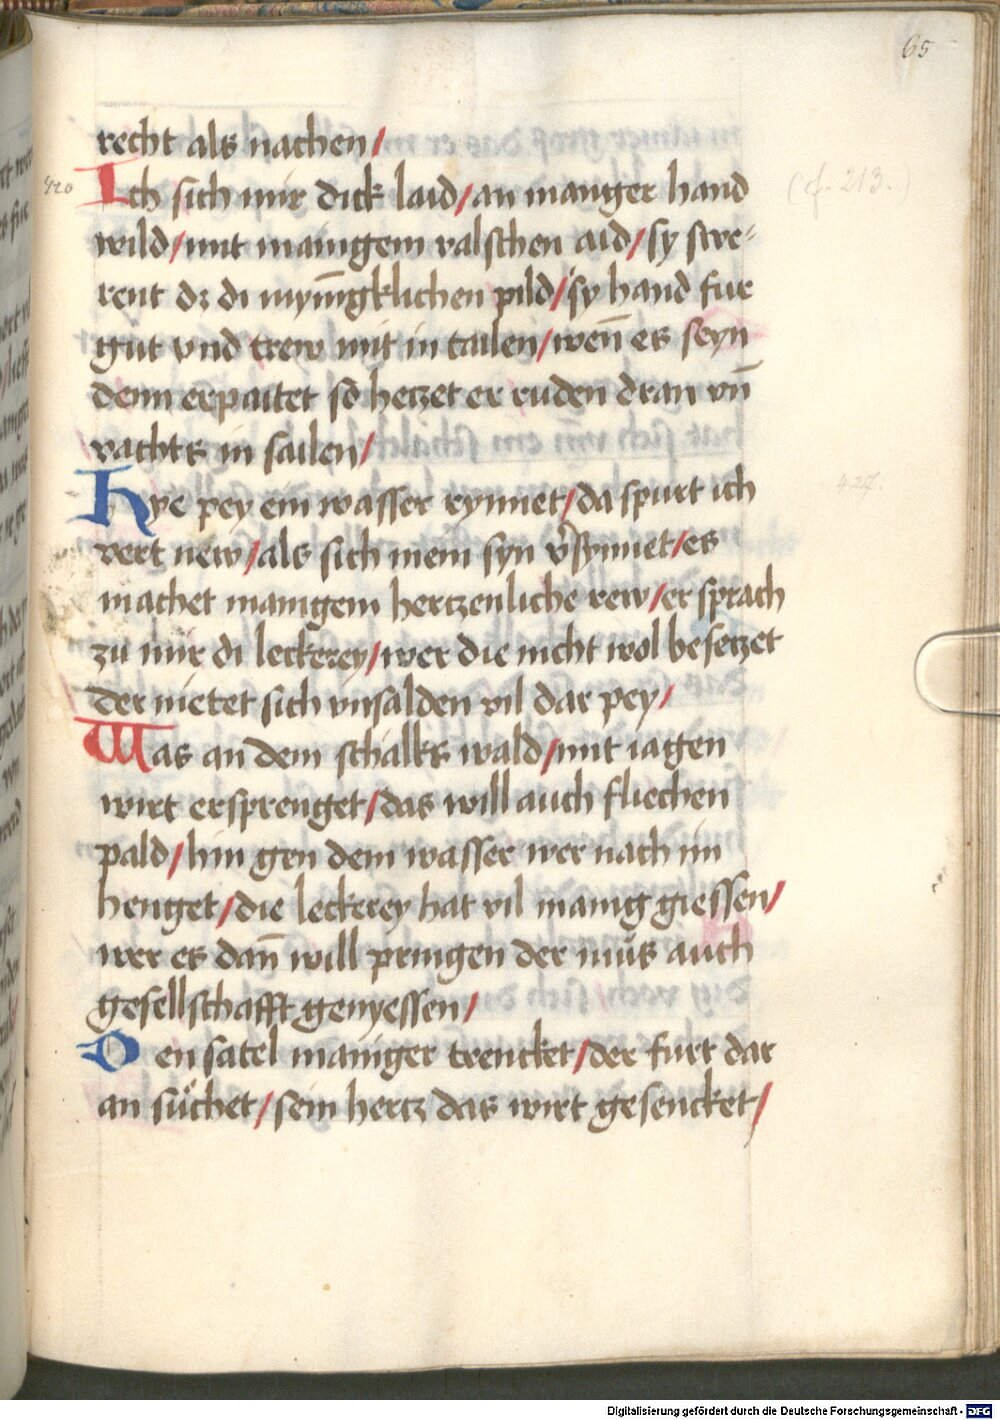 65
recht als nachen/
420 Ich sich mir dick laid/an maniger hand
wild/mit manigem valschen aid/sy swe-
rent dz di mynigklichen pild/sy hand fur
gut vnd trew mit in tailen/wen̄ es seyn
denn erpaitet so hetzet er ruden dran vn̄
vachts in sailen/
Hye pey ein wasser rynnet/da spurt ich
vert new/als sich mein syn v̾synnet/es
machet manigem hertzenliche rew/er sprach
zu mir di leckerey/wer die nicht wol besetzet
der nietet sich vnsalden vil dar pey/
Was an dem schalks wald/mit iagen
wirt ersprenget/das will auch fliechen
pald/hin gen dem wasser wer nach im
henget/die leckerey hat vil manig giessen/
wer es dan̄ will pringen der mus auch
gesellschafft genyessen/
Den satel maniger trencket/der furt dar
an sůchet/sein hertz das wirt gesencket/
(cf. 213.)
Digitalisierung gefördert durch die Deutsche Forschungsgemeinschaft - DFG